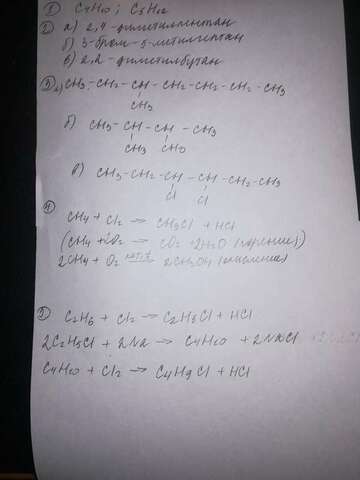 ① C4H10 ; C5H12
② а) 2,4-диметилпентан
б) 3-бром-5-метилгептан
в) 2,2-диметилбутан
③ а) CH3-CH2-CH-CH2-CH2-CH2-CH3
CH3
б) CH3-CH-CH-CH3
CH3 CH3
в) CH3-CH2-CH-CH-CH2-CH3
Cl Cl
④
CH4 + Cl2 → CH3Cl + HCl
(CH4 + 2O2 → CO2 + 2H2O (горение))
2CH4 + O2 → 2CH3OH (окисление)
⑤ C2H6 + Cl2 → C2H5Cl + HCl
2C2H5Cl + 2Na → C4H10 + 2NaCl
C4H10 + Cl2 → C4H9Cl + HCl